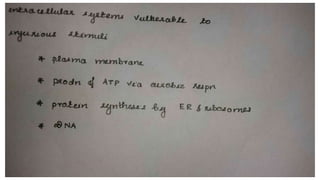 intracellular systems vulnerable to
injurious stimuli
* plasma membrane
* prodn of ATP via aerobic respn
* protein syntheses by ER & ribosomes
* DNA